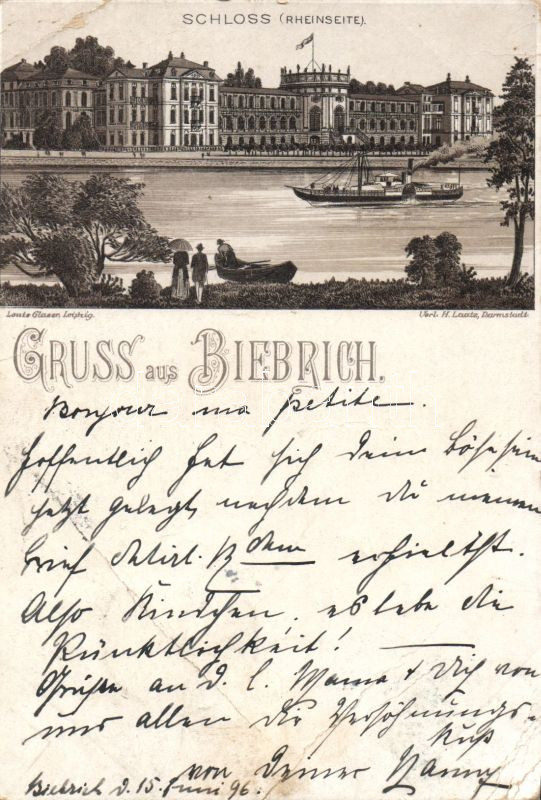 SCHLOSS (RHEINSEITE).
Louis Glaser, Leipzig.
Verl. H. Laatz, Darmstadt
GRUSS aus BIEBRICH.
Bonjour ma petite.
Hoffentlich hat sich Dein Bösesein
jetzt gelegt, nachdem Du meinen
Brief erhieltst.
Also Kindchen, es lebe die
Pünktlichkeit!
Grüße an D. l. Mama & Dich von
uns allen Dir Versöhnungs-
kuß
von Deiner Nanny
Biebrich d. 15. Juni 96.